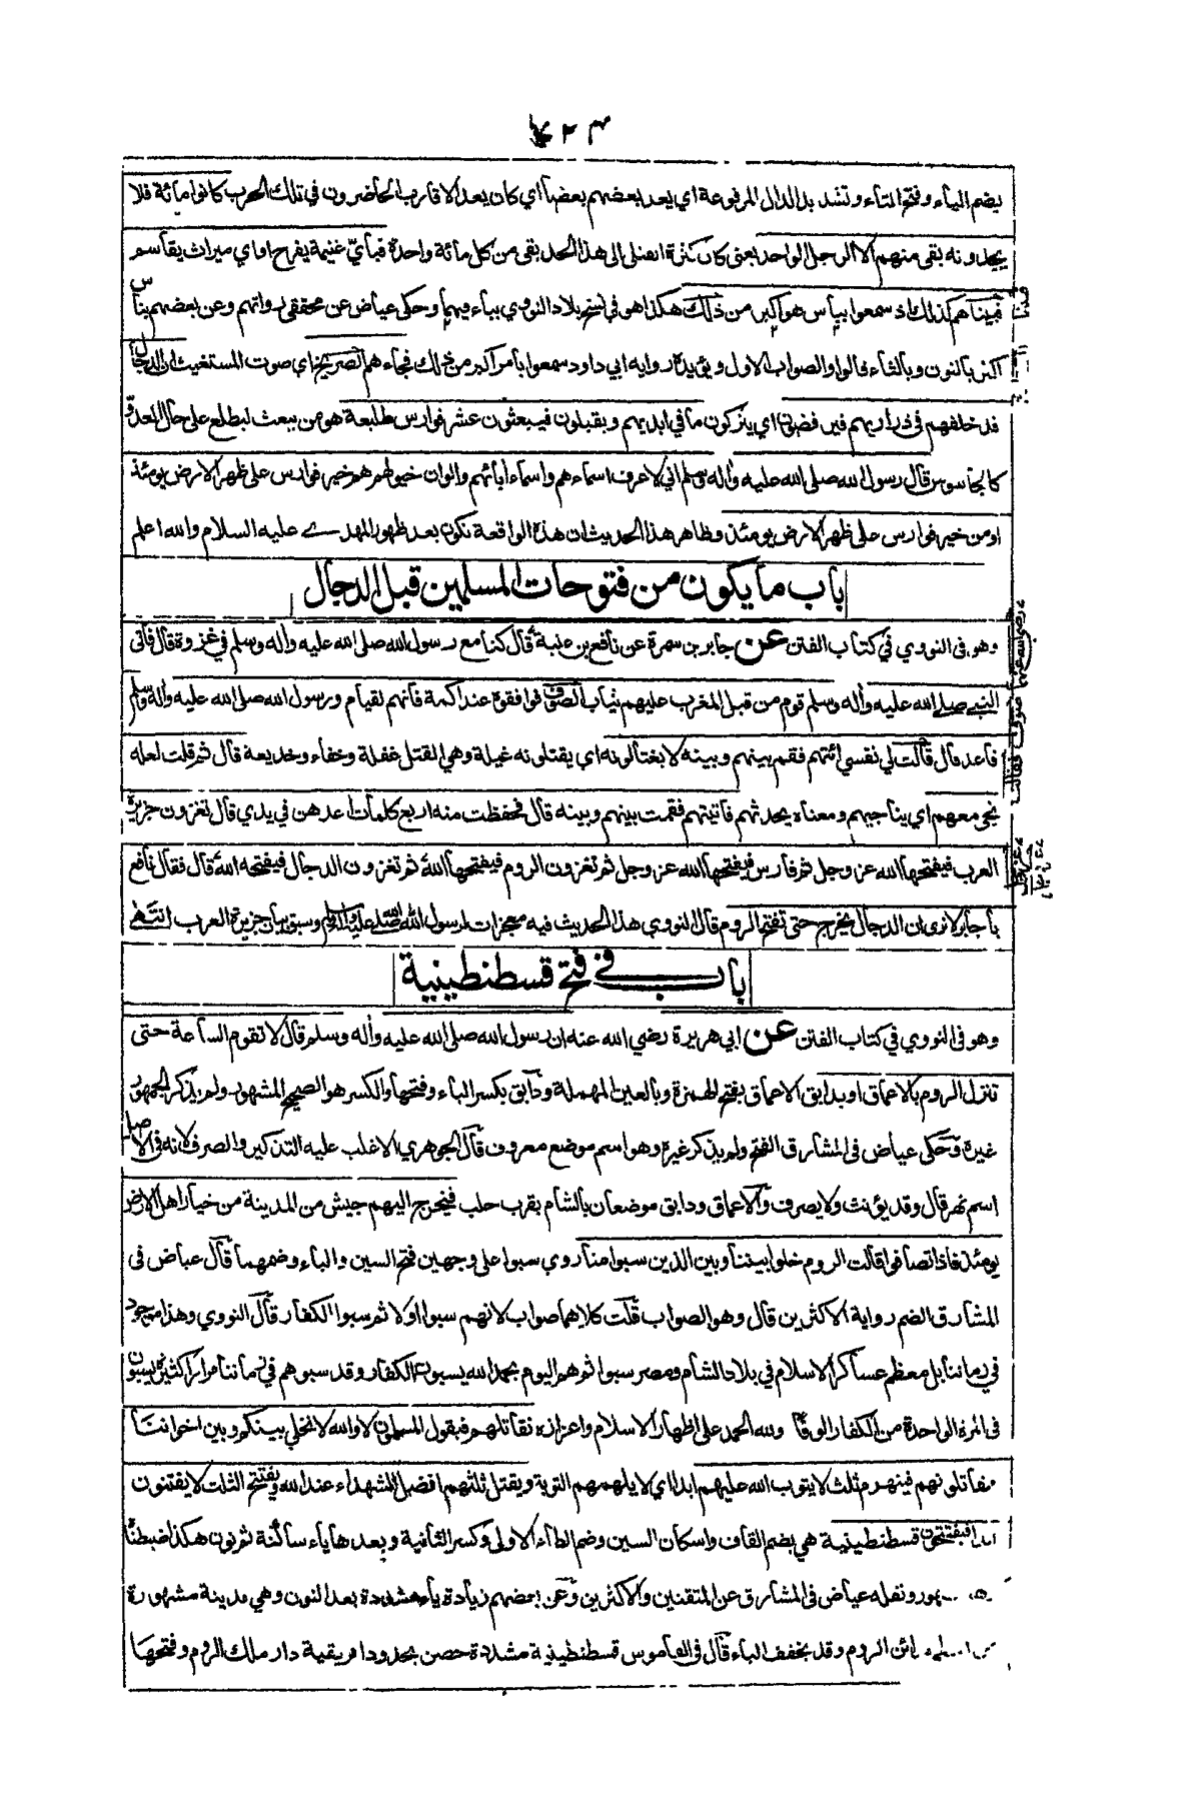 بضم الياء وفتح التاء وتشديد الدال المرفوعة اي يعد بعضهم بعضا اي كان يعد الاقارب الحاضرون في تلك الحرب كانوا مائة فلا
يجدونه بقي منهم الا الرجل الواحد يعني كان كثرة القتلى الى هذا الحد بقي من كل مائة واحدة فبأي غنيمة يفرح او اي ميراث يقاسم
فبينا هم كذلك اذ سمعوا ببأس هو اكبر من ذلك هكذا هو في نسخ بلاد النووي بباء فيهما وحكى عياض عن محققي رواتهم وعن بعضهم بناس
اكثر بالنون وبالثاء قالوا والصواب الاول ويؤيده رواية ابي داود سمعوا بأمر اكبر من ذلك فجاءهم الصريخ اي صوت المستغيث ان الدجال
قد خلفهم في ذراريهم فيرفضون اي يتركون ما في ايديهم ويقبلون فيبعثون عشر فوارس طليعة هو من يبعث ليطلع على حال العدو
كالجاسوس قال رسول الله صلى الله عليه وأله وسلم اني لاعرف اسماءهم واسماء ابائهم والوان خيولهم هم خير فوارس على ظهر الارض يومئذ
او من خير فوارس على ظهر الارض يومئذ وظاهر هذا الحديث ان هذه الواقعة تكون بعد ظهور المهدي عليه السلام والله اعلم
باب ما يكون من فتوحات المسلمين قبل الدجال
وهو في النووي في كتاب الفتن عن جابر بن سمرة عن نافع بن عتبة قال كنا مع رسول الله صلى الله عليه وأله وسلم في غزوة قال فأتى
النبي صلى الله عليه وأله وسلم قوم من قبل المغرب عليهم ثياب الصوف فوافقوه عند اكمة فانهم لقيام ورسول الله صلى الله عليه وأله وسلم
قاعد قال قالت لي نفسي ائتهم فقم بينهم وبينه لا يغتالونه اي يقتلونه غيلة وهي القتل غفلة وخفاء وخديعة قال ثم قلت لعله
نجي معهم اي يناجيهم ومعناه يحدثهم فاتيتهم فقمت بينهم وبينه قال فحفظت منه اربع كلمات اعدهن في يدي قال تغزون جزيرة
العرب فيفتحها الله عز وجل ثم فارس فيفتحها الله عز وجل ثم تغزون الروم فيفتحها الله ثم تغزون الدجال فيفتحه الله قال فقال نافع
يا جابر لا نرى ان الدجال يخرج حتى تفتح الروم قال النووي هذا الحديث فيه معجزات لرسول الله صلى الله عليه وأله وسلم وسبق بيان جزيرة العرب انتهى
باب في فتح قسطنطينية
وهو في النووي في كتاب الفتن عن ابي هريرة رضي الله عنه ان رسول الله صلى الله عليه وأله وسلم قال لا تقوم الساعة حتى
تنزل الروم بالاعماق او بدابق الاعماق بفتح الهمزة وبالعين المهملة ودابق بكسر الباء وفتحها والكسر هو الصحيح المشهور ولم يذكر الجمهور
غيره وحكى عياض في المشارق الفتح ولم يذكر غيره وهو اسم موضع معروف قال الجوهري الاغلب عليه التذكير والصرف لانه في الاصل
اسم نهر قال وقد يؤنث ولا يصرف والاعماق ودابق موضعان بالشام بقرب حلب فيخرج اليهم جيش من المدينة من خيار اهل الارض
يومئذ فاذا تصافوا قالت الروم خلوا بيننا وبين الذين سبوا منا روي سبوا على وجهين فتح السين والباء وضمهما قال عياض في
المشارق الضم رواية الاكثرين قال وهو الصواب قلت كلاهما صواب لانهم سبوا اولا ثم سبوا الكفار قال النووي وهذا موجود
في زماننا بل معظم عساكر الاسلام في بلاد الشام ومصر سبوا ثم هم اليوم بحمد الله يسبون الكفار وقد سبوهم في زماننا مرارا كثيرة يسبون
في المرة الواحدة من الكفار الوفا ولله الحمد على اظهار الاسلام واعزازه نقاتلهم فيقول المسلمون لا والله لا نخلي بينكم وبين اخواننا
فيقاتلونهم فينهزم ثلث لا يتوب الله عليهم ابدا اي لا يلهمهم التوبة ويقتل ثلثهم افضل الشهداء عند الله ويفتتح الثلث لا يفتنون
ابدا فيفتتحون قسطنطينية هي بضم القاف واسكان السين وضم الطاء الاولى وكسر الثانية وبعدها ياء ساكنة ثم نون هكذا ضبطنا
ونقله عياض في المشارق عن المتقنين والاكثرين وعن بعضهم زيادة ياء مشددة بعد النون وهي مدينة مشهورة
مدائن الروم وقد يخفف الياء قال في القاموس قسطنطينية مشددة حصن بحدود افريقية دار ملك الروم وفتحها